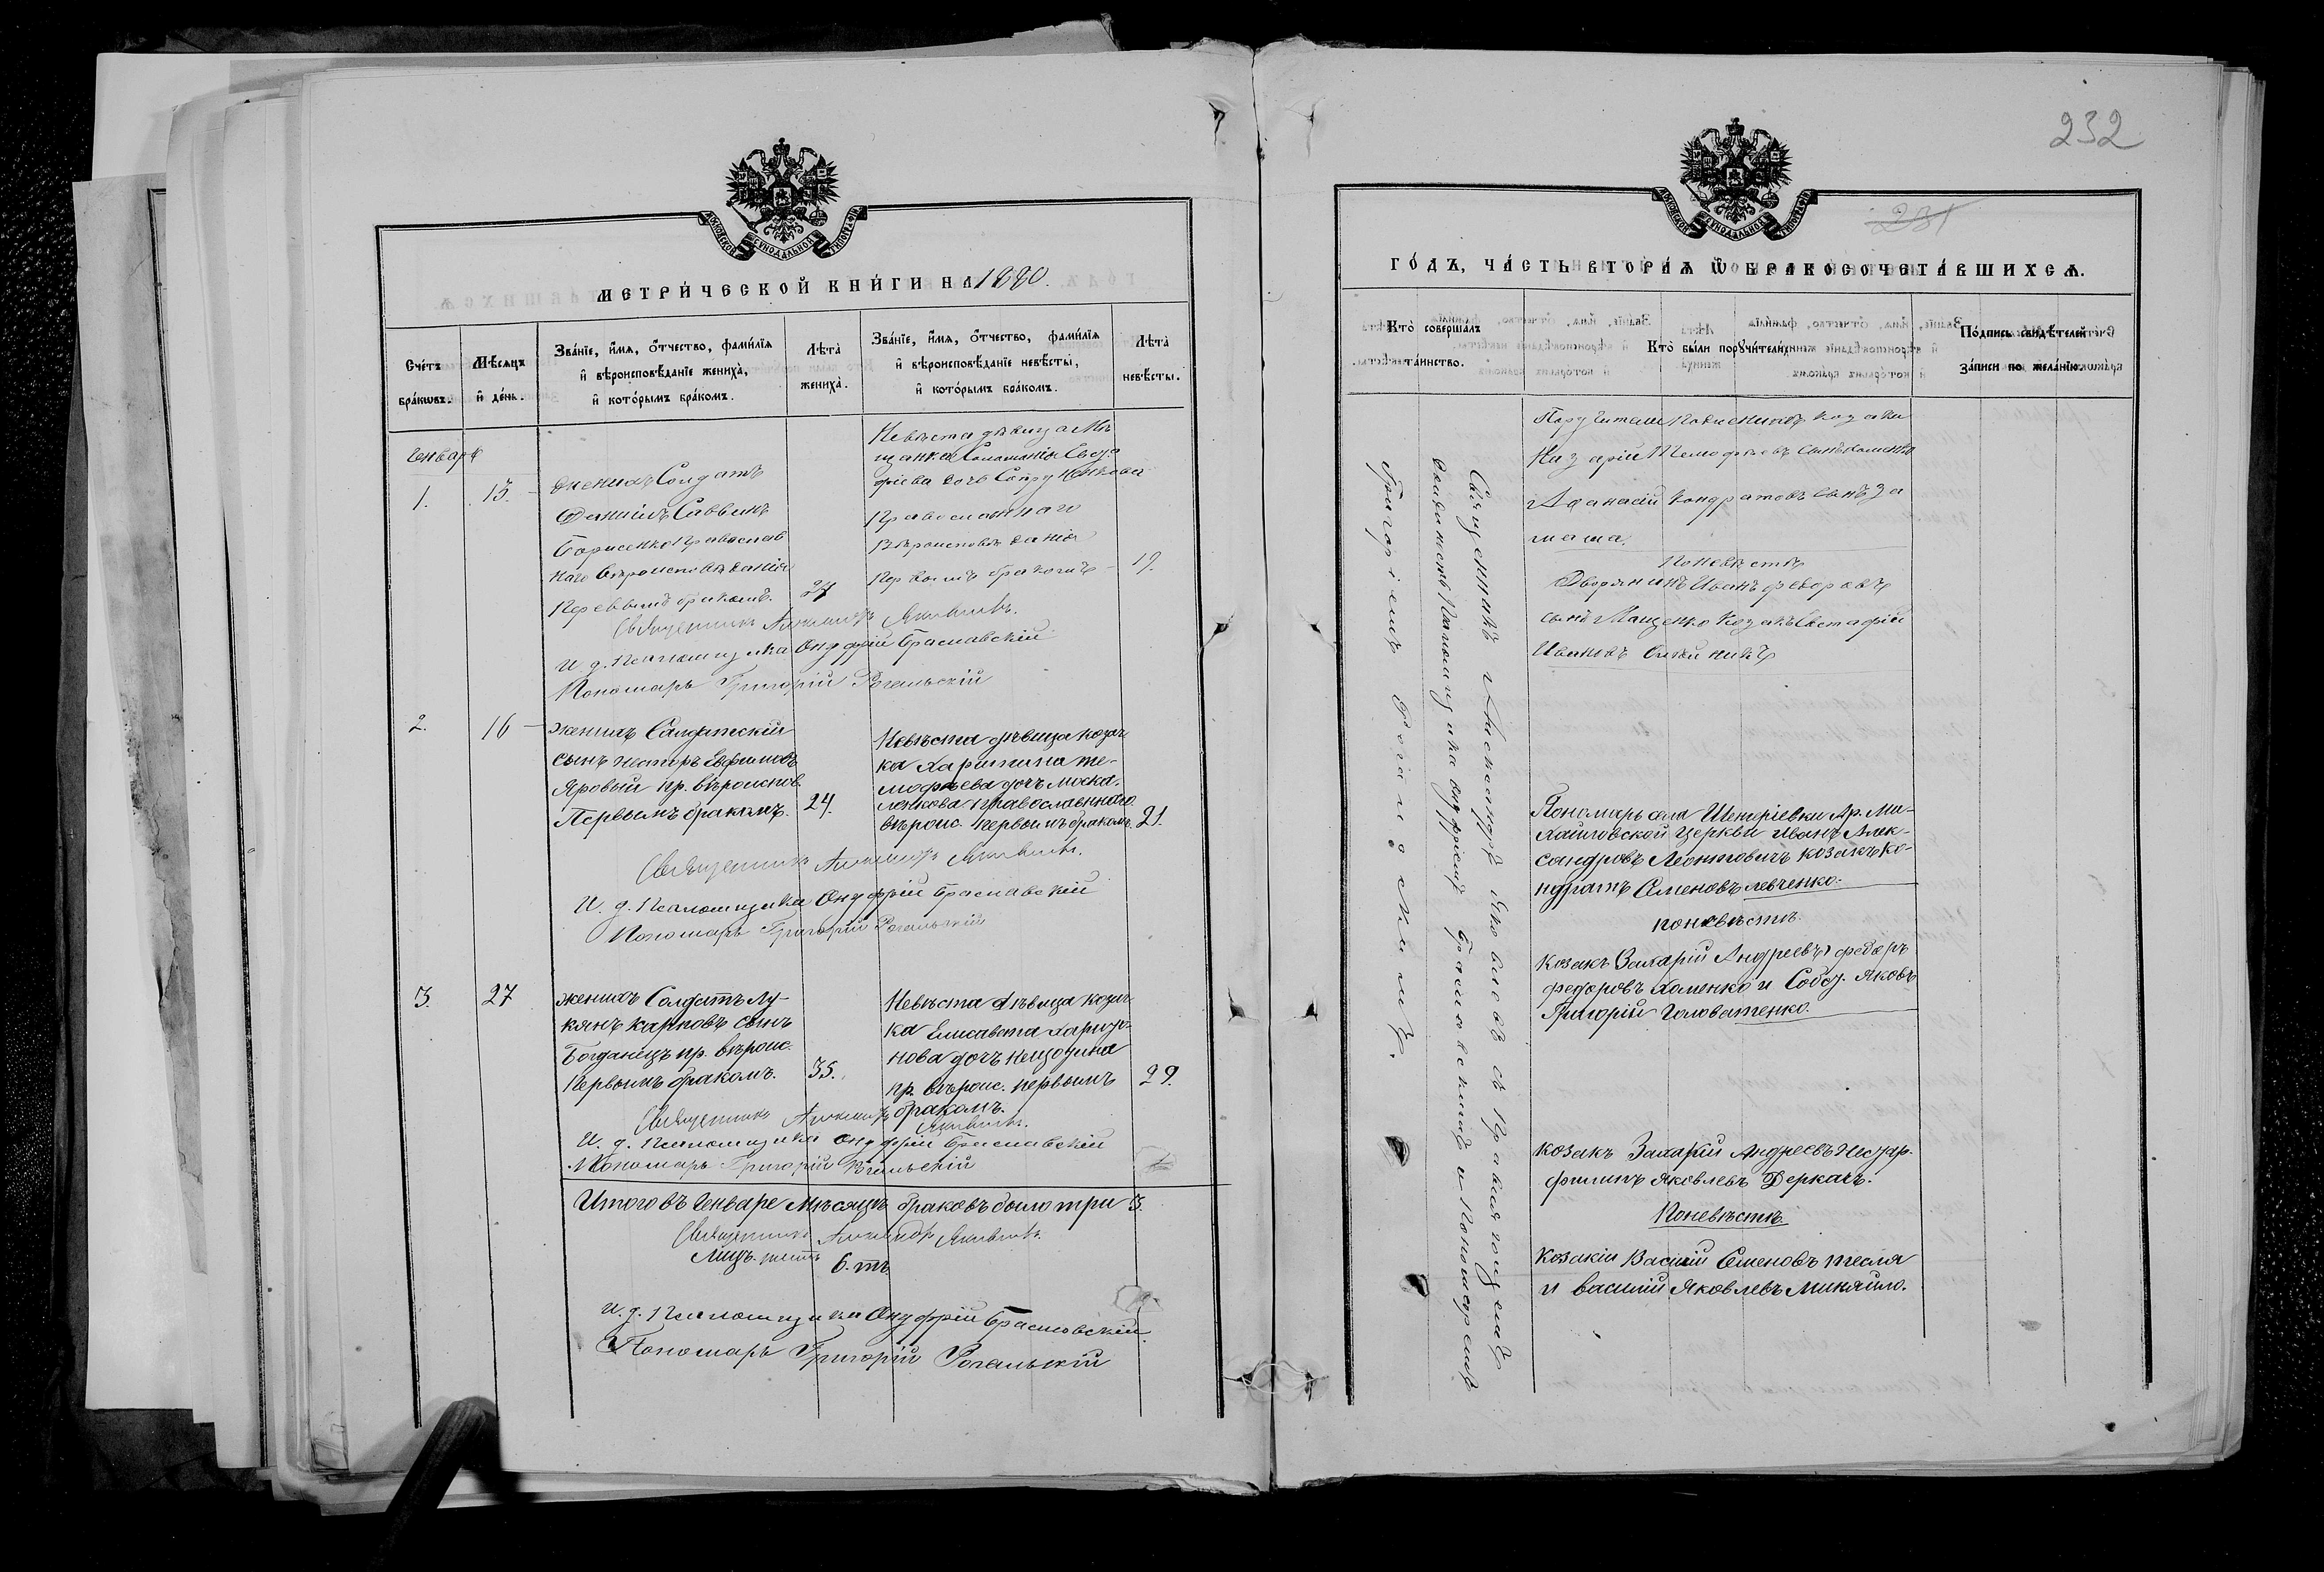 МЕТРИ́ЧЕСКОЙ КНИ́ГИ НА 1880.
Сче́тъ бра́кѡвъ.
Мѣ́сяцъ и де́нь.
Зва́нїе, и҆́мѧ, ѻ҆́тчество, фами́лїѧ и҆ вѣроисповѣ́данїе жениха̀, и҆ кото́рымъ бра́комъ.
Лѣта̀ жениха̀.
Зва́нїе, и҆́мѧ, ѻ҆́тчество, фами́лїѧ и҆ вѣроисповѣ́данїе невѣ́сты, и҆ кото́рымъ бра́комъ.
Лѣта̀ невѣ́сты.
Генваря
1.
13.
женихъ Солдатъ
Саввинъ
Борисенко православ
наго вѣроисповѣданія
первымъ бракомъ.
27
Невѣста дѣвица Мѣ
щанка
дочь
Православнаго
Вѣроисповѣданія
первымъ бракомъ
19.
Священникъ Александръ Яковлевъ.
И. д. Псаломщика Онуфрій Браславскій
Пономарь Григорій Рогальскій
2.
16
женихъ Салдатскій
сынъ Несторъ Евфимовъ
Яровый пр. вѣроиспов.
Первымъ бракомъ.
24.
Невѣста дѣвица козач
ка Харитина Ти-
мофѣева дочь Моска-
ленкова православнаго
вѣроис. первымъ бракомъ.
21.
Священникъ Александръ Яковлевъ.
И. д. Псаломщика Онуфрій Браславскій
Пономарь Григорій Рогальскій
3.
27
женихъ Солдатъ Лу-
кянъ Карповъ сынъ
Богданецъ пр. вѣроис.
Первымъ бракомъ.
35.
Невѣста дѣвица козач-
ка Елисавета
нова дочь
пр. вѣроис. первымъ
бракомъ.
29.
Священникъ Александръ Яковлевъ.
И. д. Псаломщика Онуфрій Браславскій
Пономарь Григорій Рогальскій
Итого въ Генваре мѣсяцѣ браковъ было три 3.
Священникъ Александръ Яковлевъ
Лицъ шесть 6.
И. д. Псаломщика Онуфрій Браславскій.
Пономарь Григорій Рогальскій
232
231
ГО́ДЪ, ЧА́СТЬ ВТОРА́Ѧ Ѡ҆ БРАКОСОЧЕТА́ВШИХСѦ.
Кто̀ соверша́лъ та́инство.
Кто̀ бы́ли порꙋчи́тели.
По́дпись свидѣ́телей за́писи по жела́нїю.
Священникъ Александръ Яковлевъ съ Исправляющимъ
должность Псаломщика Онуфріемъ Браславскимъ и Пономаремъ
Григоріемъ Рогальскимъ.
Поручители по женихѣ козаки
Назарій Тимофѣевъ сынъ Хоменко
Афанасій Кондратовъ сынъ
По невѣстѣ
Дворянинъ Иванъ Федоровъ
сынъ Мащенко Козакъ Евстафій
Ивановъ
Пономарь села Шендріевки Ар. Ми-
хайловской церкви Иванъ Алек-
сандровъ Леонтовичъ козакъ Ко-
ндратъ Семеновъ Левченко.
По невѣстѣ
Козакъ Захарій Андреевъ, Федоръ
Федоровъ Хоменко и Собст. Яковъ
Григорій Головатенко.
Козакъ Захарій Андреевъ
Филипъ Яковлевъ Деркачъ.
По невѣстѣ
Козакіи Василій Семеновъ Тесля
и Василій Яковлевъ Миняйло.